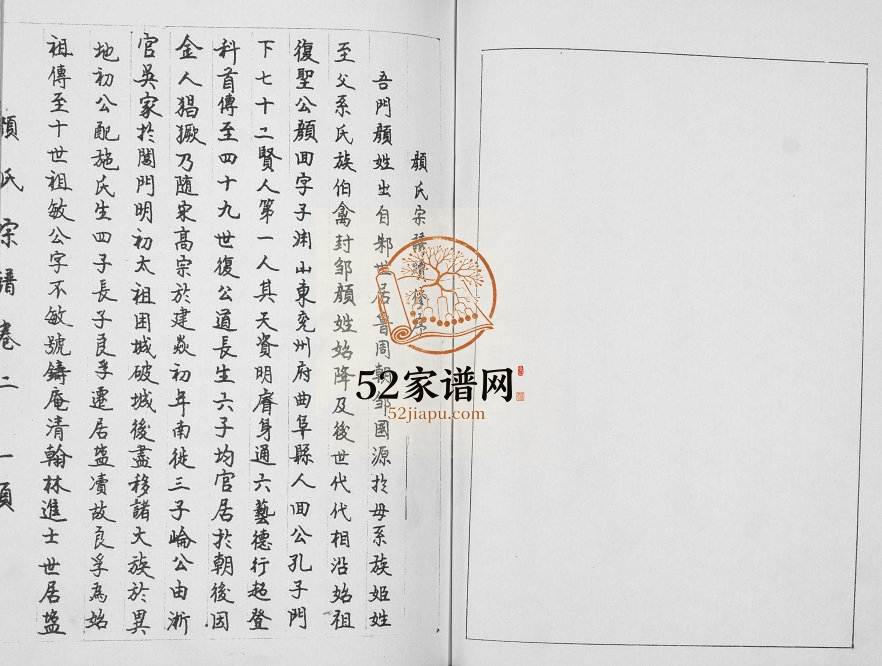 顏氏宗譜續修序
吾門顏姓出自邾世居魯周朝邹國源於母系族姬姓
至父系氏族伯禽封邹顏姓始降及後世代代相沿始祖
復聖公顏回字子淵山東兖州府曲阜縣人回公孔子門
下七十二賢人第一人其天資明睿身通六藝德行超登
科首傳至四十九世復公道長生六子均官居於朝後因
金人猖獗乃随宋高宗於建炎初年南徙三子崘公由浙
官吴家於閶門明初太祖困城破城後盡移諸大族於異
地初公配施氏生四子長子良孚遷居盐瀆故良孚為始
祖傳至十世祖敏公字不敏號鑄庵清翰林進士世居盐
顏氏宗譜卷二 一頁
52家谱网
52jiapu.com